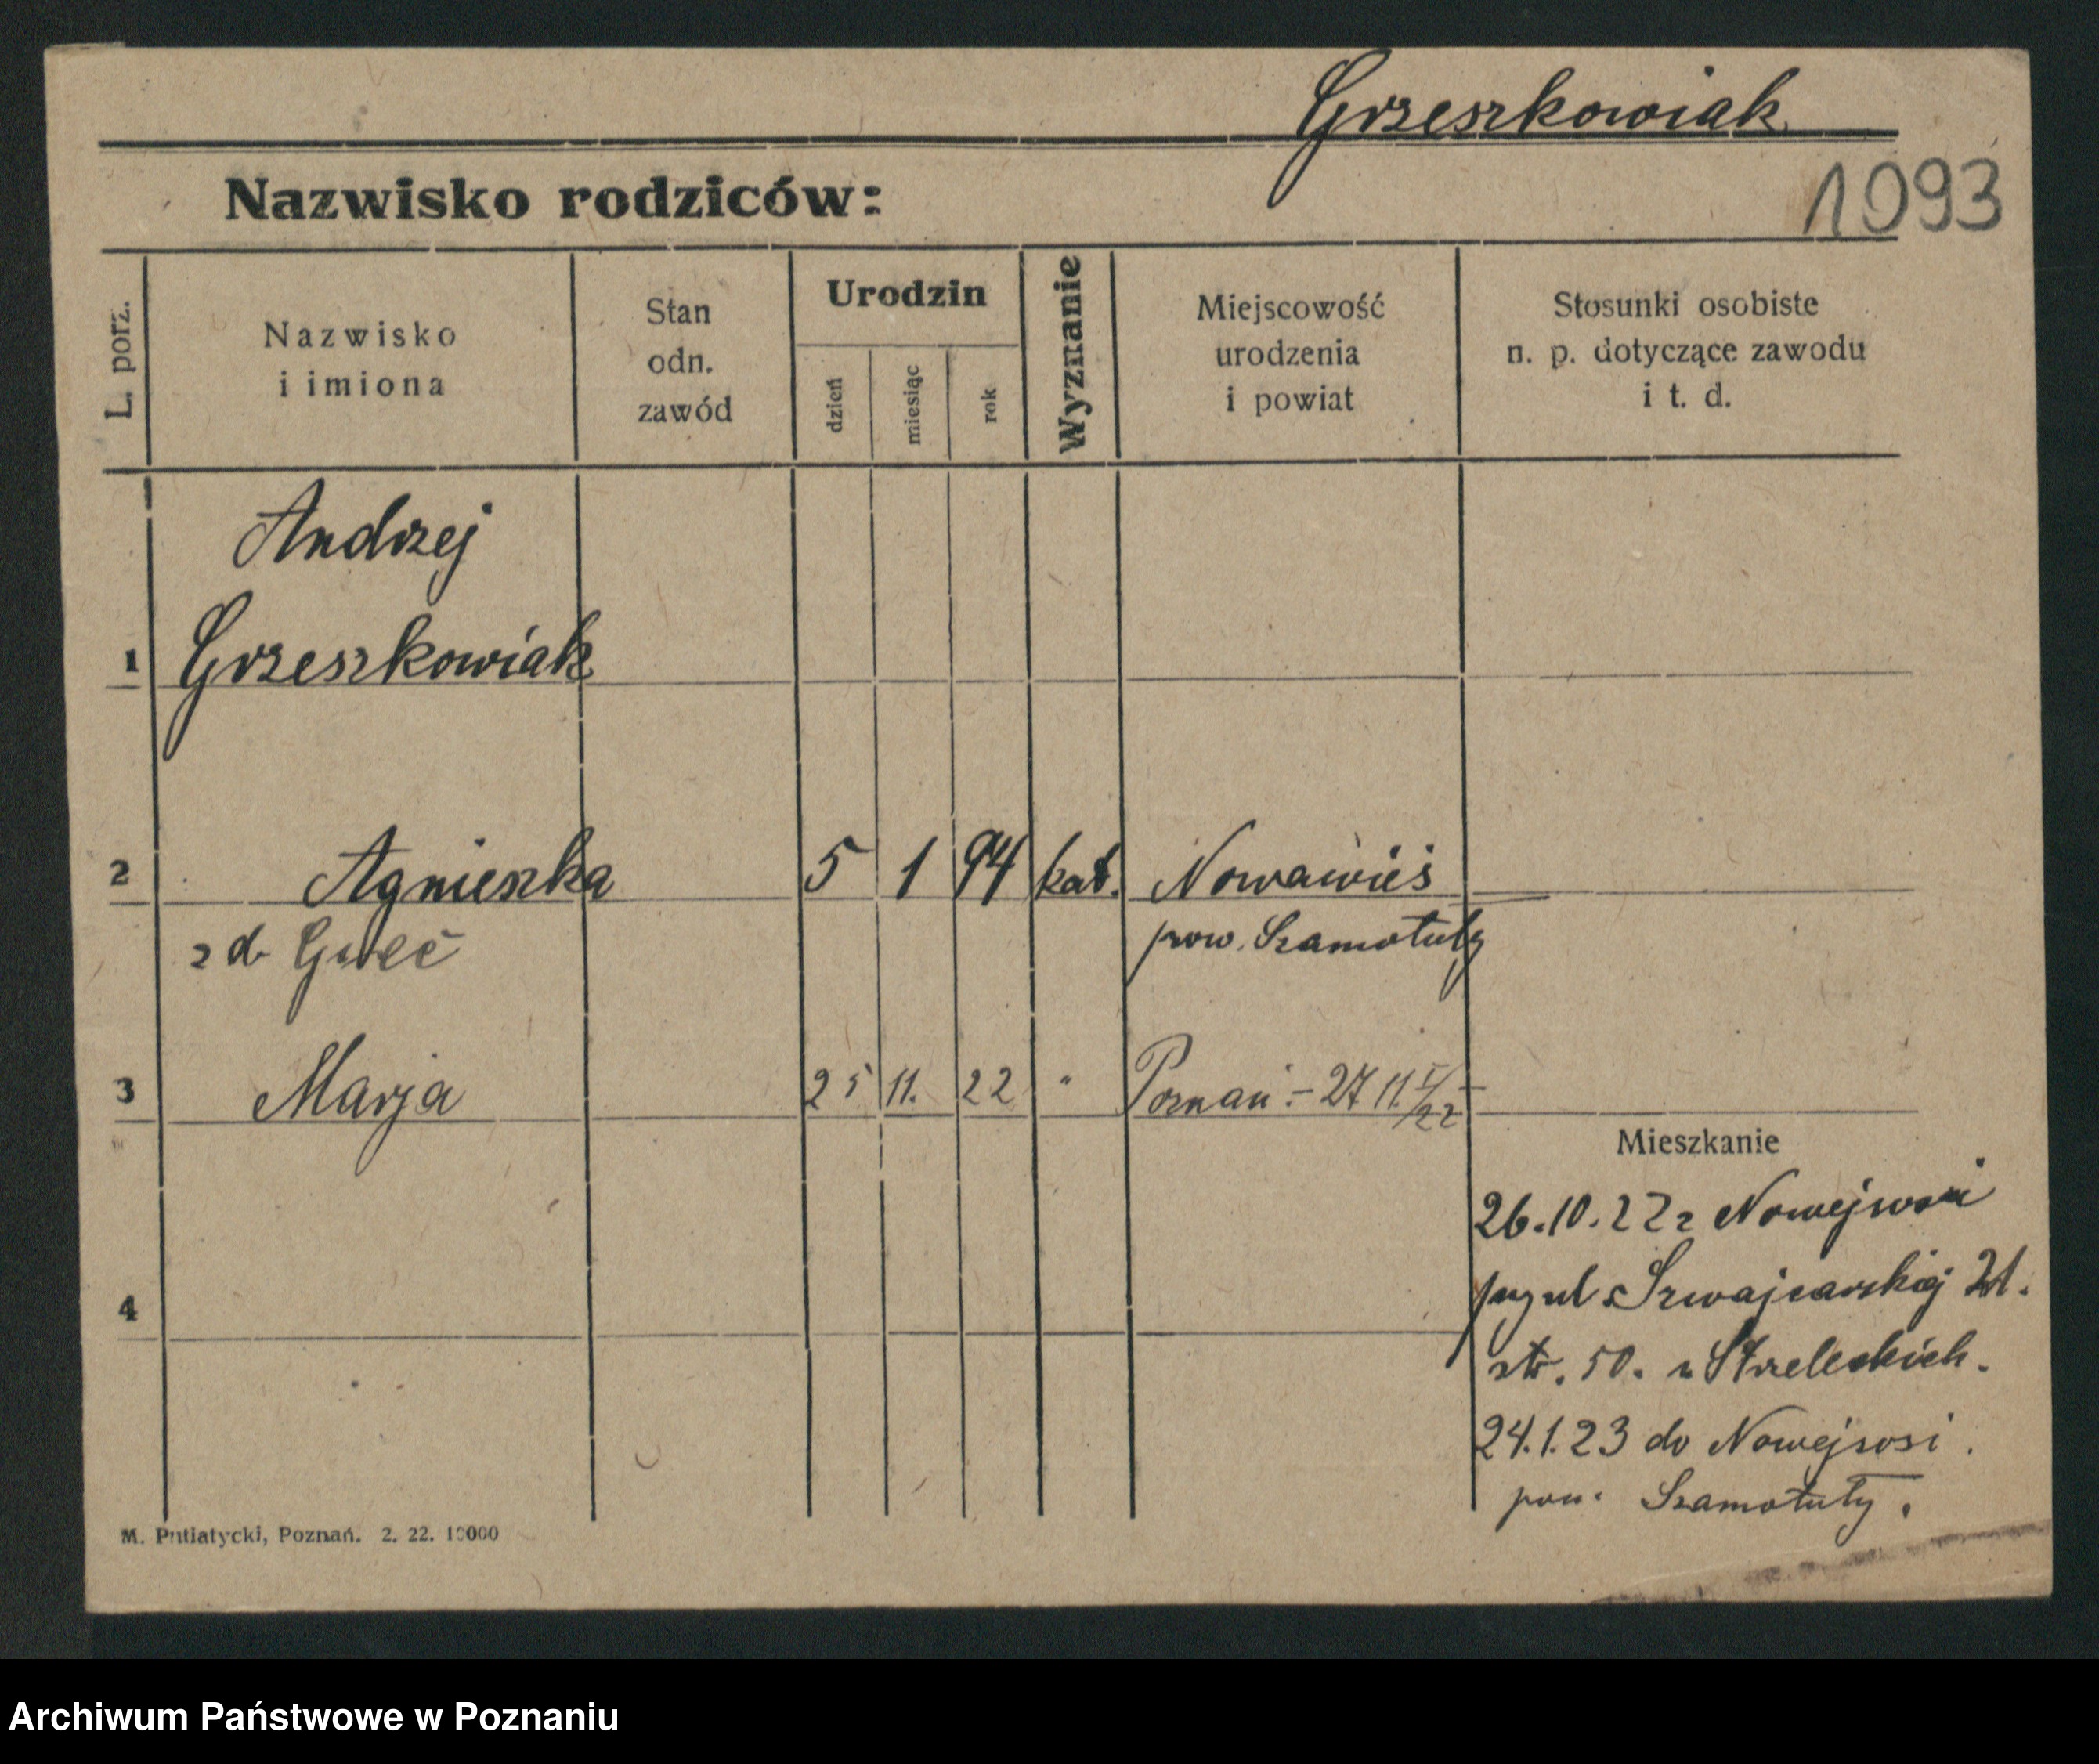 Grzeszkowiak
Nazwisko rodziców:
1093
L. porz.
Nazwisko
i imiona
Stan
odn.
zawód
Urodzin
dzień
miesiąc
rok
Wyznanie
Miejscowość
urodzenia
i powiat
Stosunki osobiste
n. p. dotyczące zawodu
i t. d.
Andrzej
1 Grzeszkowiak
2 Agnieszka 5 1 94 kat. Nowawieś
z d. pow. Szamotuły
3 Marja 25 11. 22 " Poznań - 27 11
Mieszkanie
26.10.22 z Nowejwsi
ul. Szwajcarskiej 21.
str. 50. u Strzeleckich.
4
24.1.23 do Nowejwsi.
pow. Szamotuły.
M. Putiatycki, Poznań. 2. 22. 10000
Archiwum Państwowe w Poznaniu